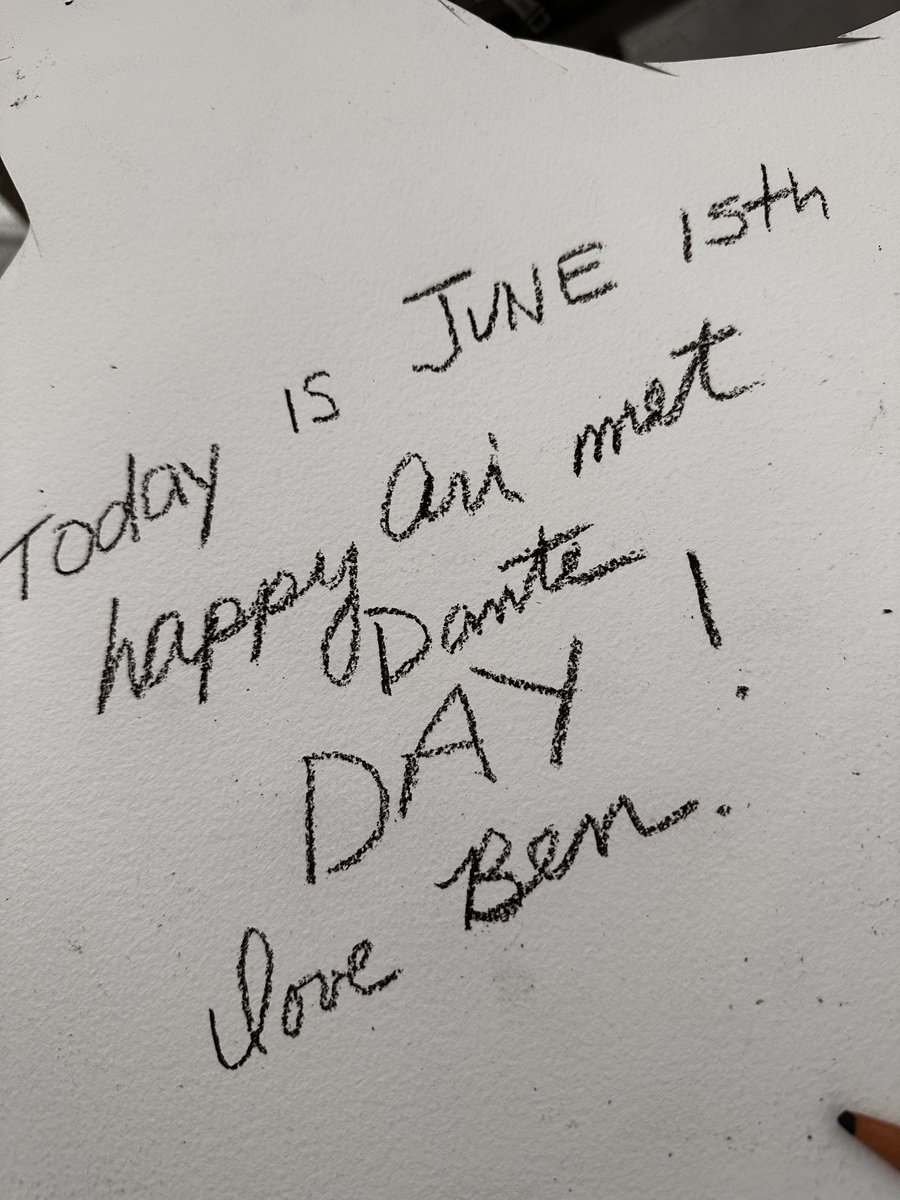 Today is JUNE 15th
happy Ari met
Dante
DAY !
love Ben.